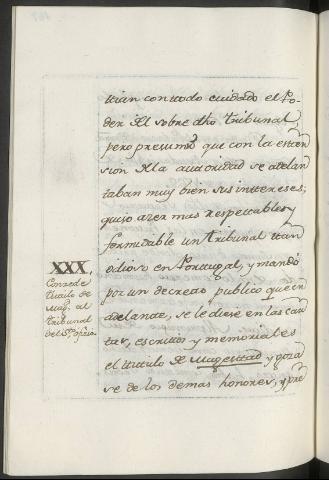 trian con todo cuidado el Po-
der Rl sobre dho tribunal
pero presumdo que con la exten
sion de la autoridad se adelan
taban muy bien sus intereses,
quiso azer mas respectable, y
formidable un tribunal tan
odioso en Portugal, y mandó
por un decreto publico que en
adelante, se le diese en las car
tas, escritos y memoriales
el titulo de Magestad y goza
se de los demas honores, y pre
XXX.
Concede
titulo de
Mag. al
tribunal
del St. Oficio.